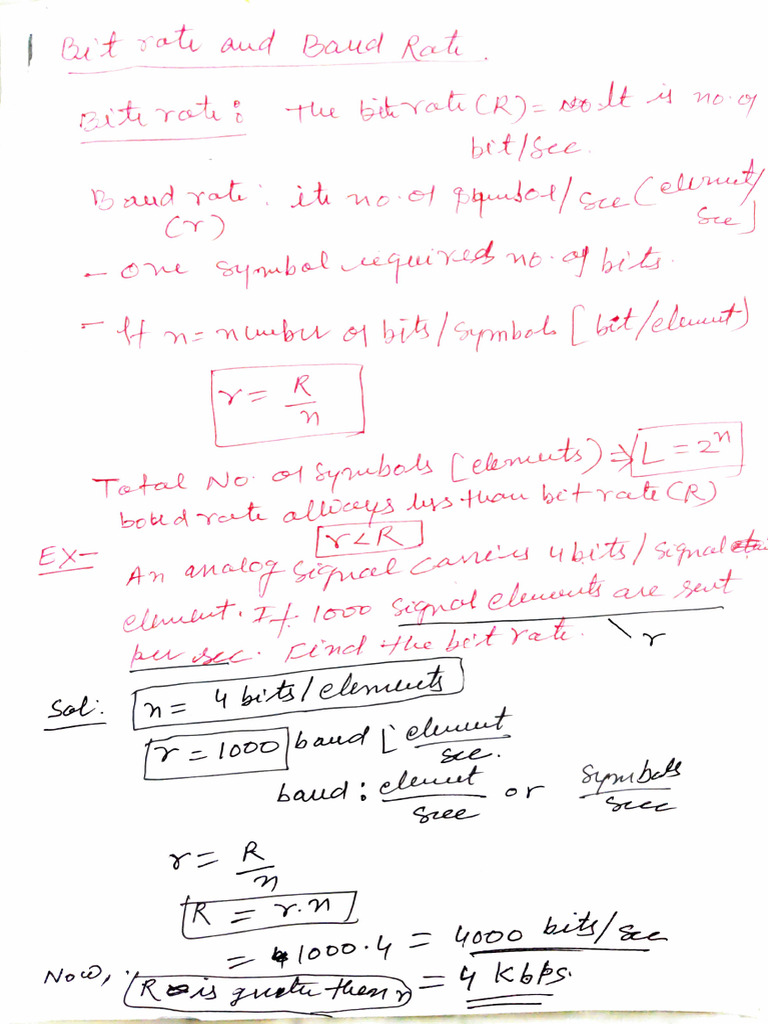 Bit rate and Baud Rate.
Bite rate : the bite rate (R) = It is no. of
bit/sec.
Baud rate : its no. of symbol/sec (element/
(r) sec]
- one symbol required no. of bits.
- If n = number of bits/symbols [bit/element)
r = R/n
Total No. of symbols [elements) ⇒ L = 2^n
baud rate allways less than bit rate (R)
r < R
EX- An analog signal carries 4 bits/signal
element. If 1000 signal elements are sent
per sec. Find the bit rate. r
Sol: n = 4 bits/elements
r = 1000 baud [element/sec.
baud : element/sec or symbols/sec
r = R/n
R = r.n
= 1000.4 = 4000 bits/sec
Now, R is greater then r = 4 Kbps.